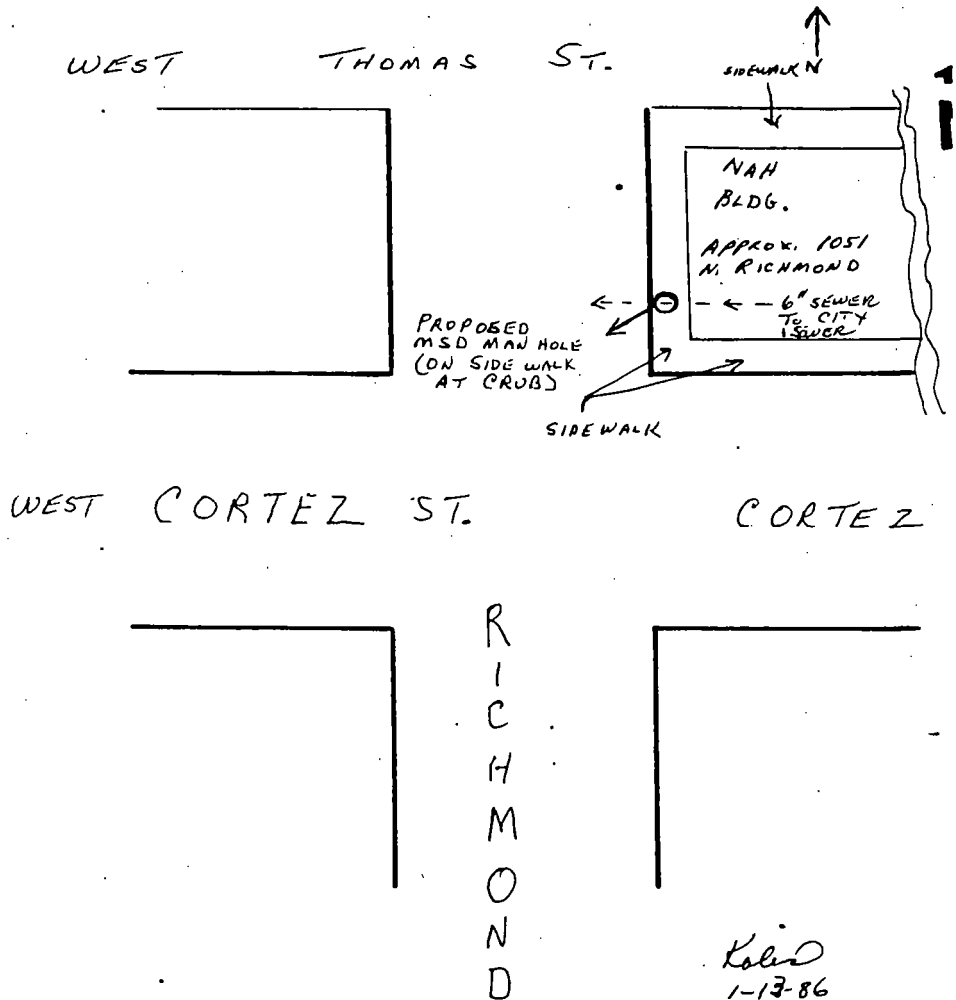 WEST THOMAS ST.
SIDEWALK N
NAH
BLDG.
APPROX. 1051
N. RICHMOND
6" SEWER
TO CITY
SEWER
PROPOSED
MSD MAN HOLE
(ON SIDE WALK
AT CRUB)
SIDEWALK
WEST CORTEZ ST. CORTEZ
RICHMOND
1-13-86